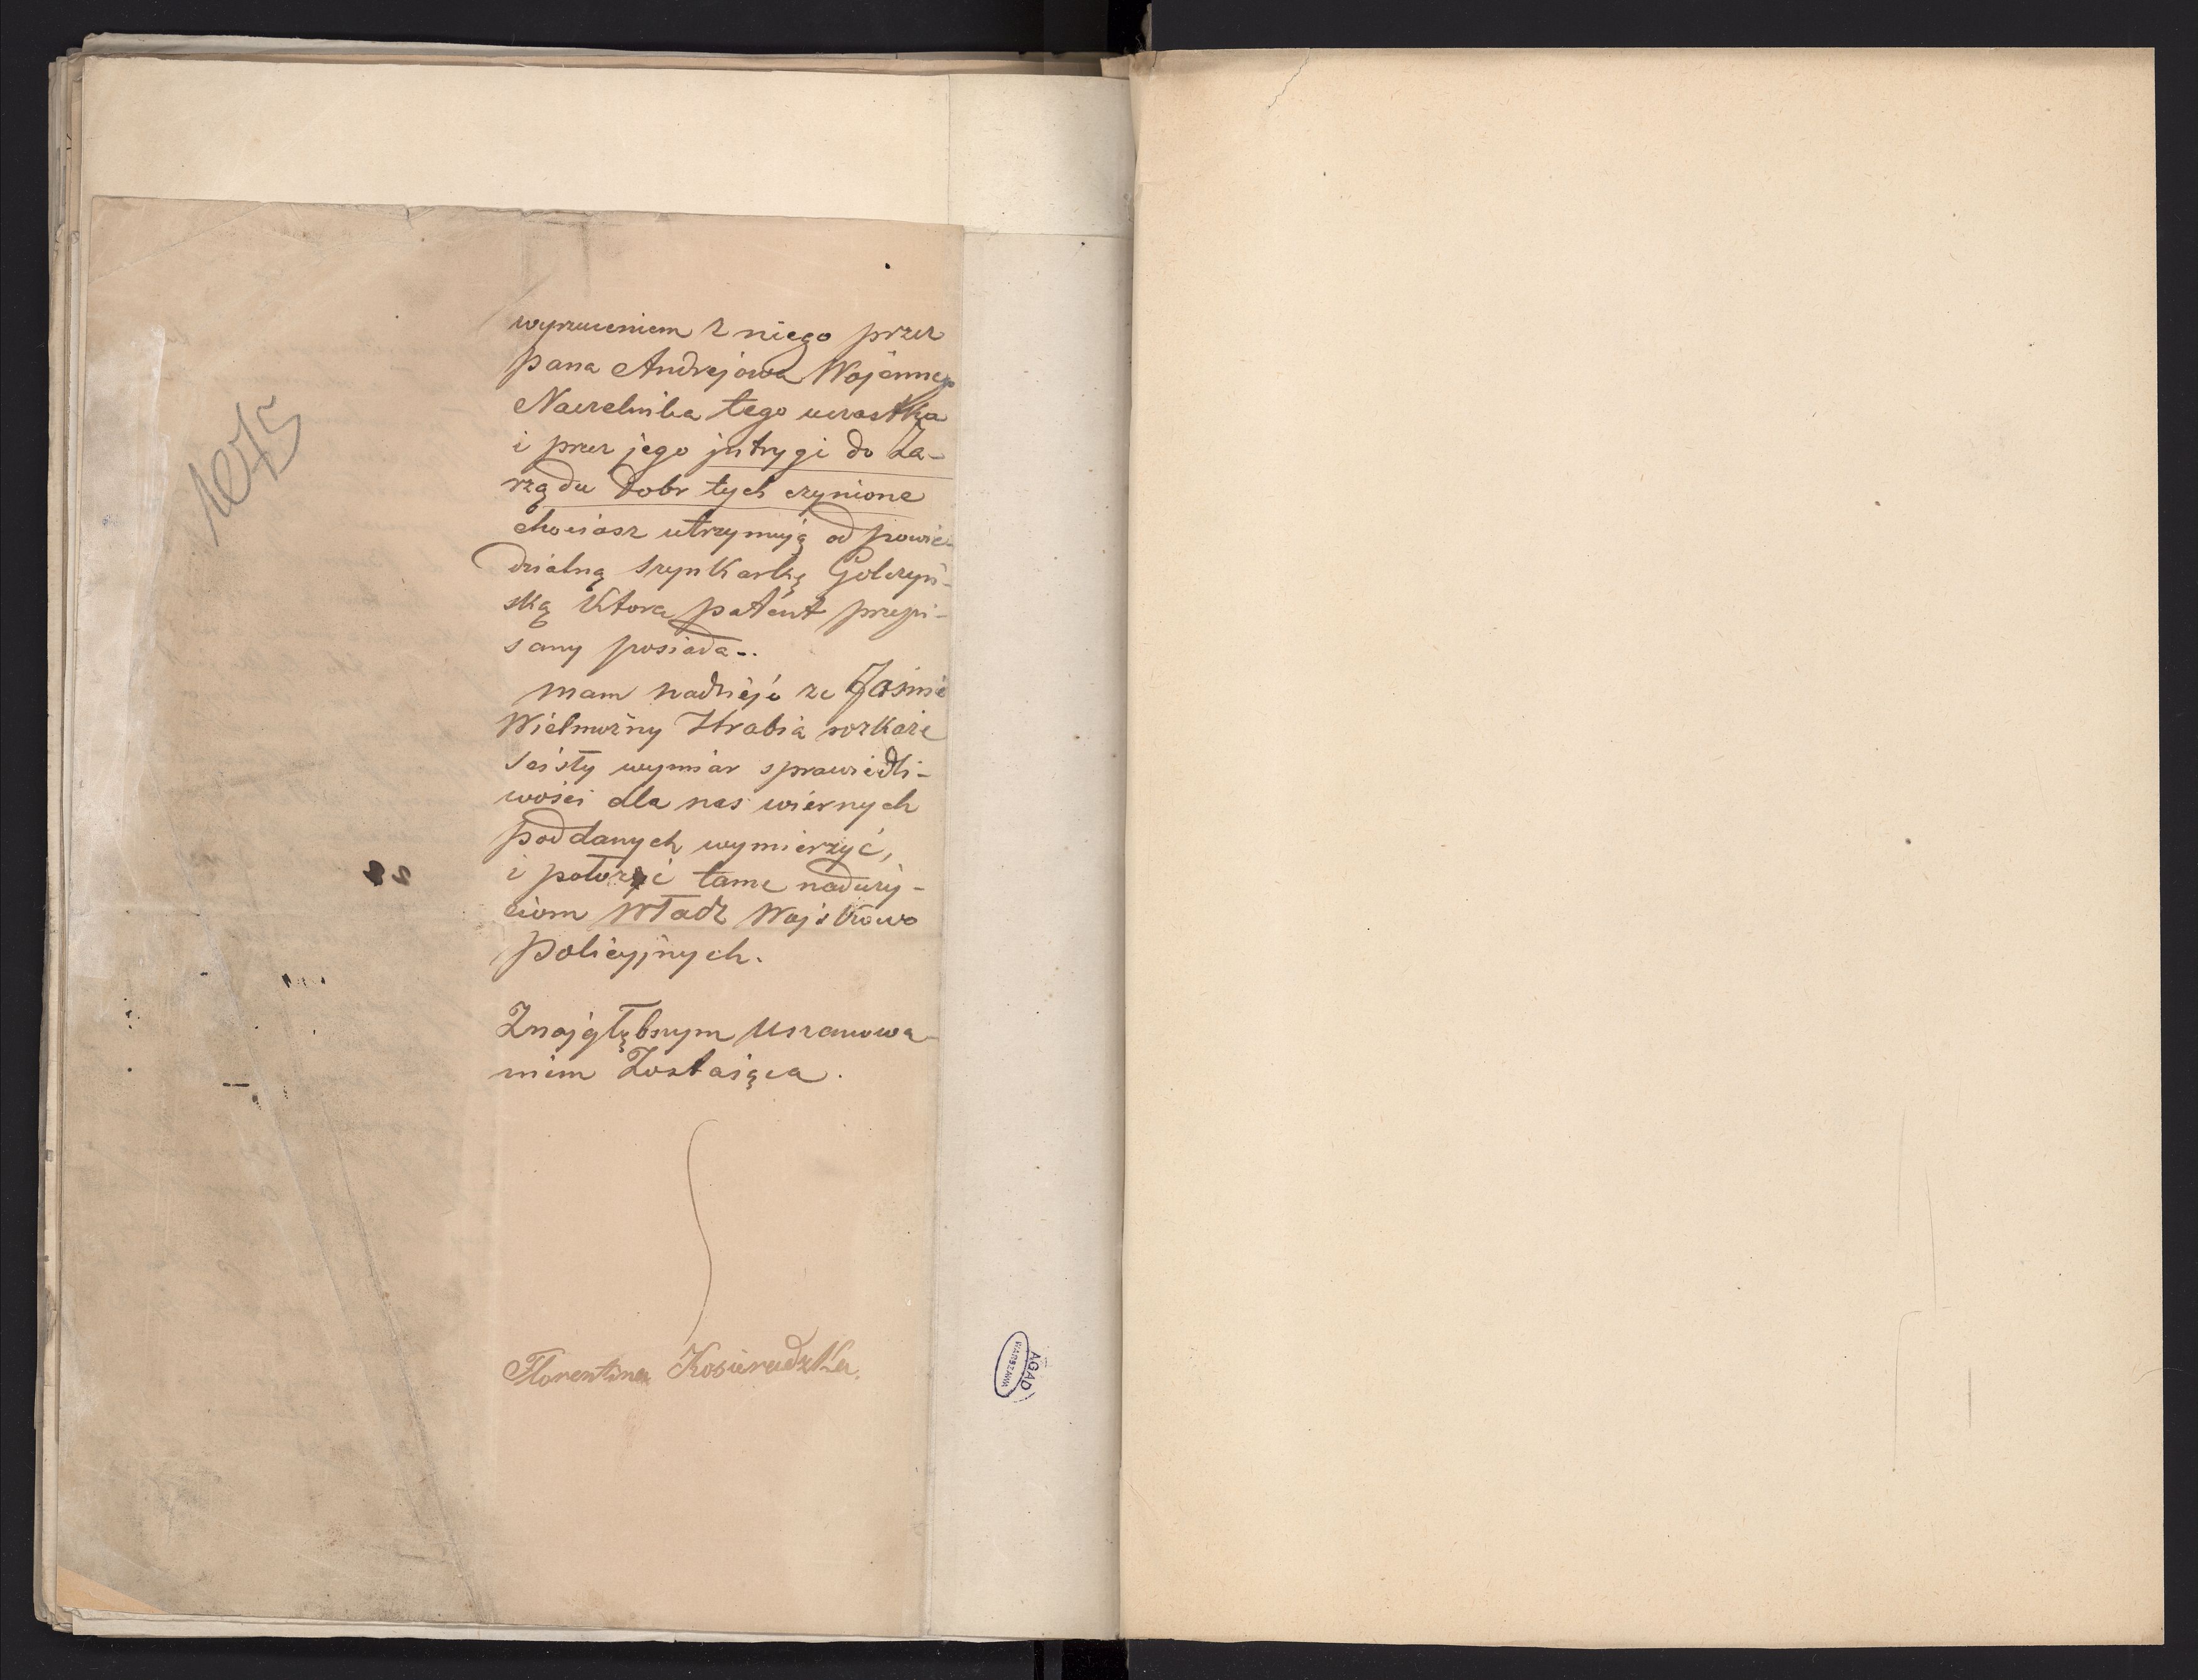 1075
wyrzuceniem z niego przez
pana Andrejowa Wojenneg
Naczelnika tego uczastka
i przez jego jntrygi do Za-
rządu Dobr tych czynione
chociasz utrzymują odpowie-
dzialną szynkarkę Golczyń-
ską Ktora patent przepi-
sany posiada..
mam nadzieje ze Jaśnie
Wielmożny Hrabia rozkaże
scisły wymiar sprawiedli-
wości dla nas wiernych
poddanych wymierzyć,
i położyć tame naduży-
ciom Władz Wojskowo
policyjnych.
Znajgłębszym Uszanowa-
niem Zostająca.
Florentina Kosieradzka.
AGAD
WARSZAWA